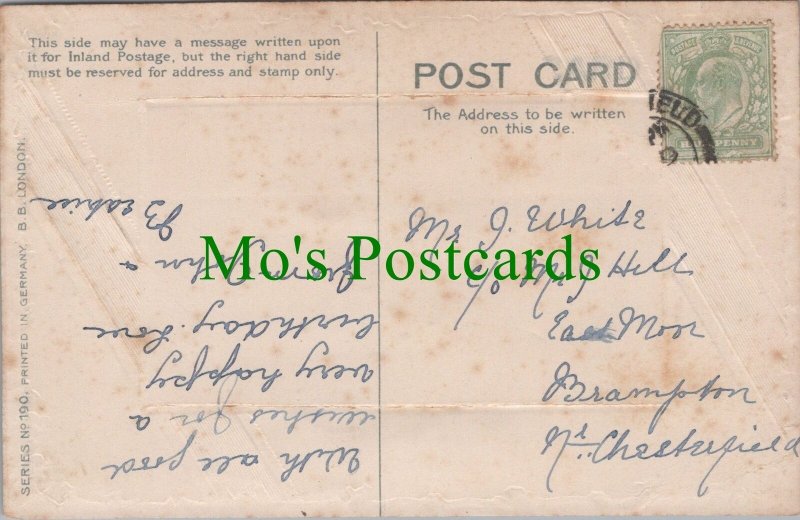 This side may have a message written upon
it for Inland Postage, but the right hand side
must be reserved for address and stamp only.
POST CARD
The Address to be written
on this side.
POSTAGE REVENUE
HALFPENNY
IELD
SERIES Nº 190. PRINTED IN GERMANY. B. B. LONDON.
With all good
wishes for a
very happy
birthday. Love
from John &
Beatrice
Mr J. White
c/o Mr G Hill
East Moor
Brampton
Nr. Chesterfield
Mo's Postcards